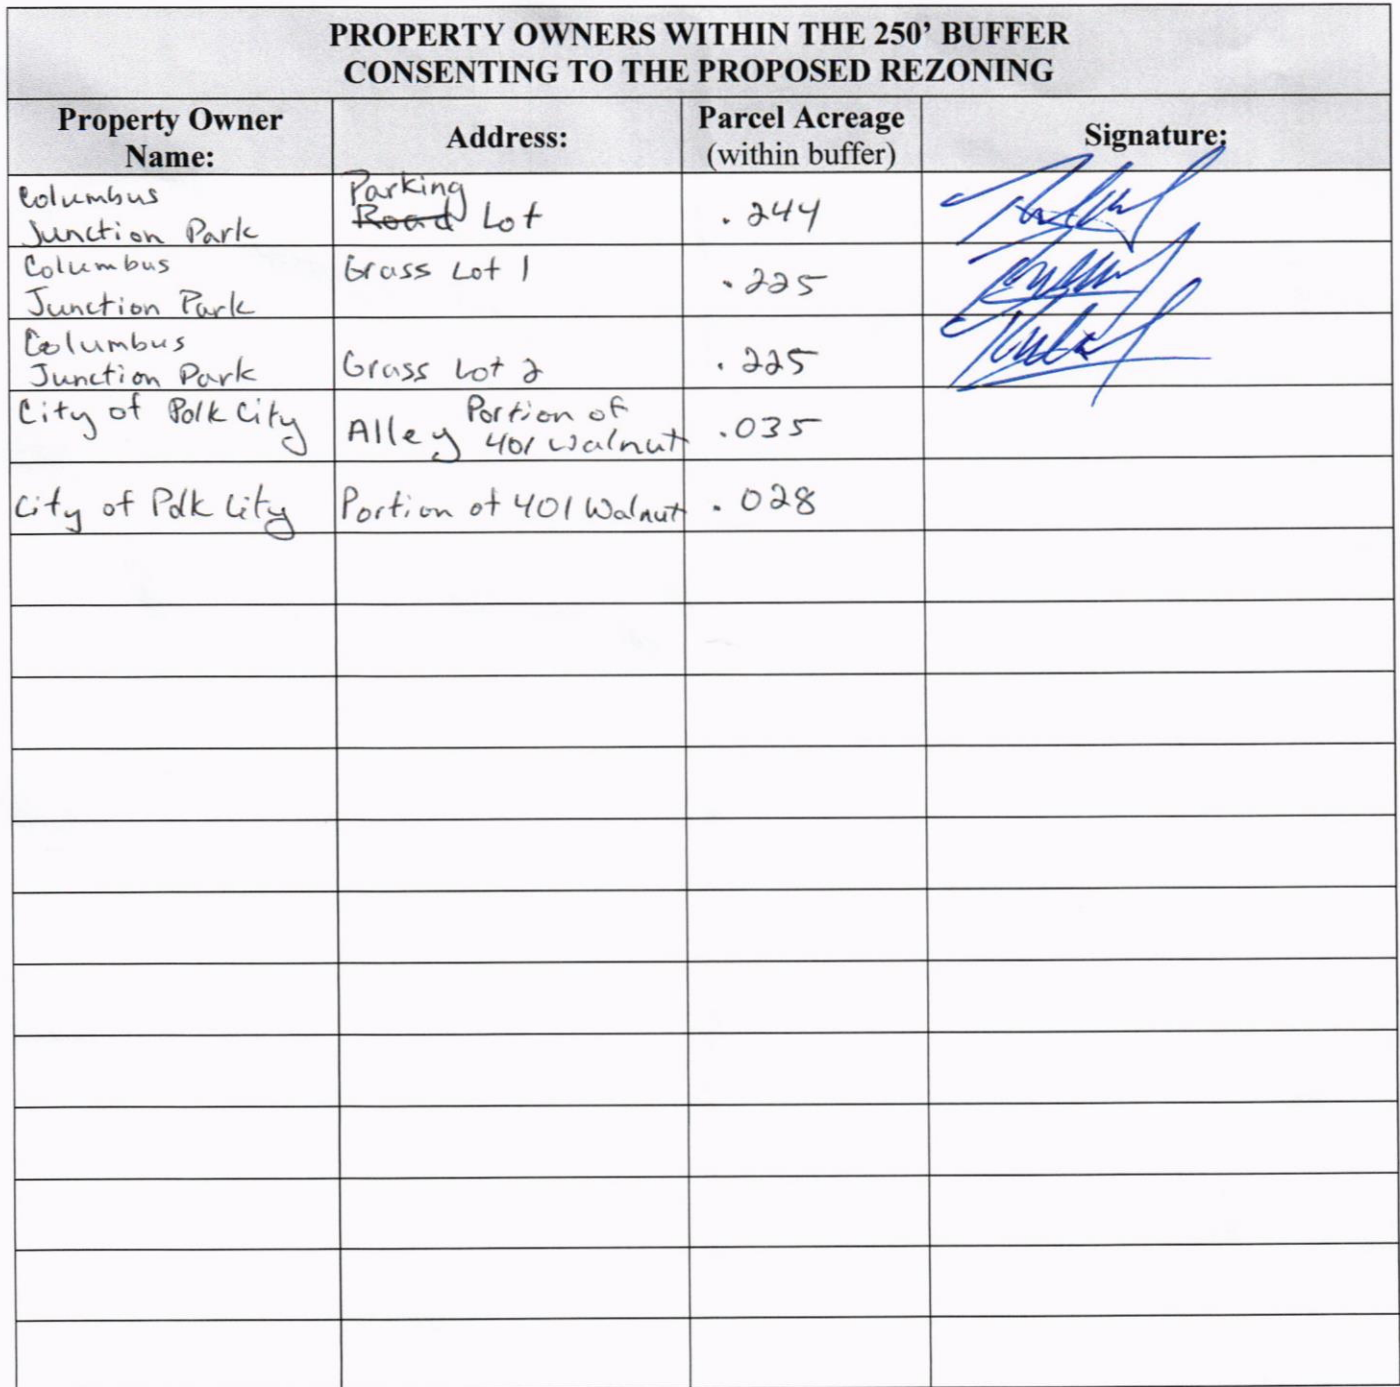 PROPERTY OWNERS WITHIN THE 250' BUFFER
CONSENTING TO THE PROPOSED REZONING
Property Owner
Name:
Address:
Parcel Acreage
(within buffer)
Signature:
Columbus
Junction Park
Parking
Road Lot
.244
Columbus
Junction Park
Grass Lot 1
.225
Columbus
Junction Park
Grass Lot 2
.225
City of Polk City
Alley Portion of
401 Walnut
.035
City of Polk City
Portion of 401 Walnut
.028